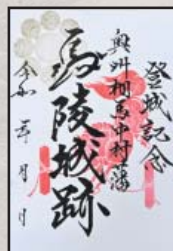 登城記念
奥州相馬中村藩
馬陵城跡
令和 年 月 日